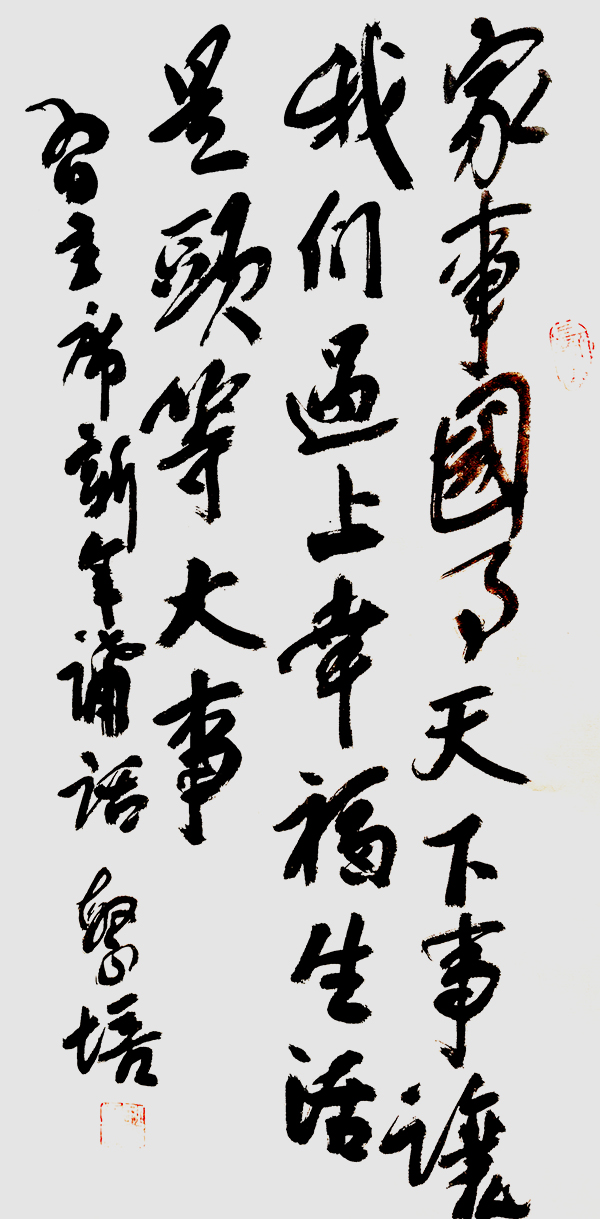 家事國事天下事讓
我们過上幸福生活
是頭等大事
習主席新年講話 培